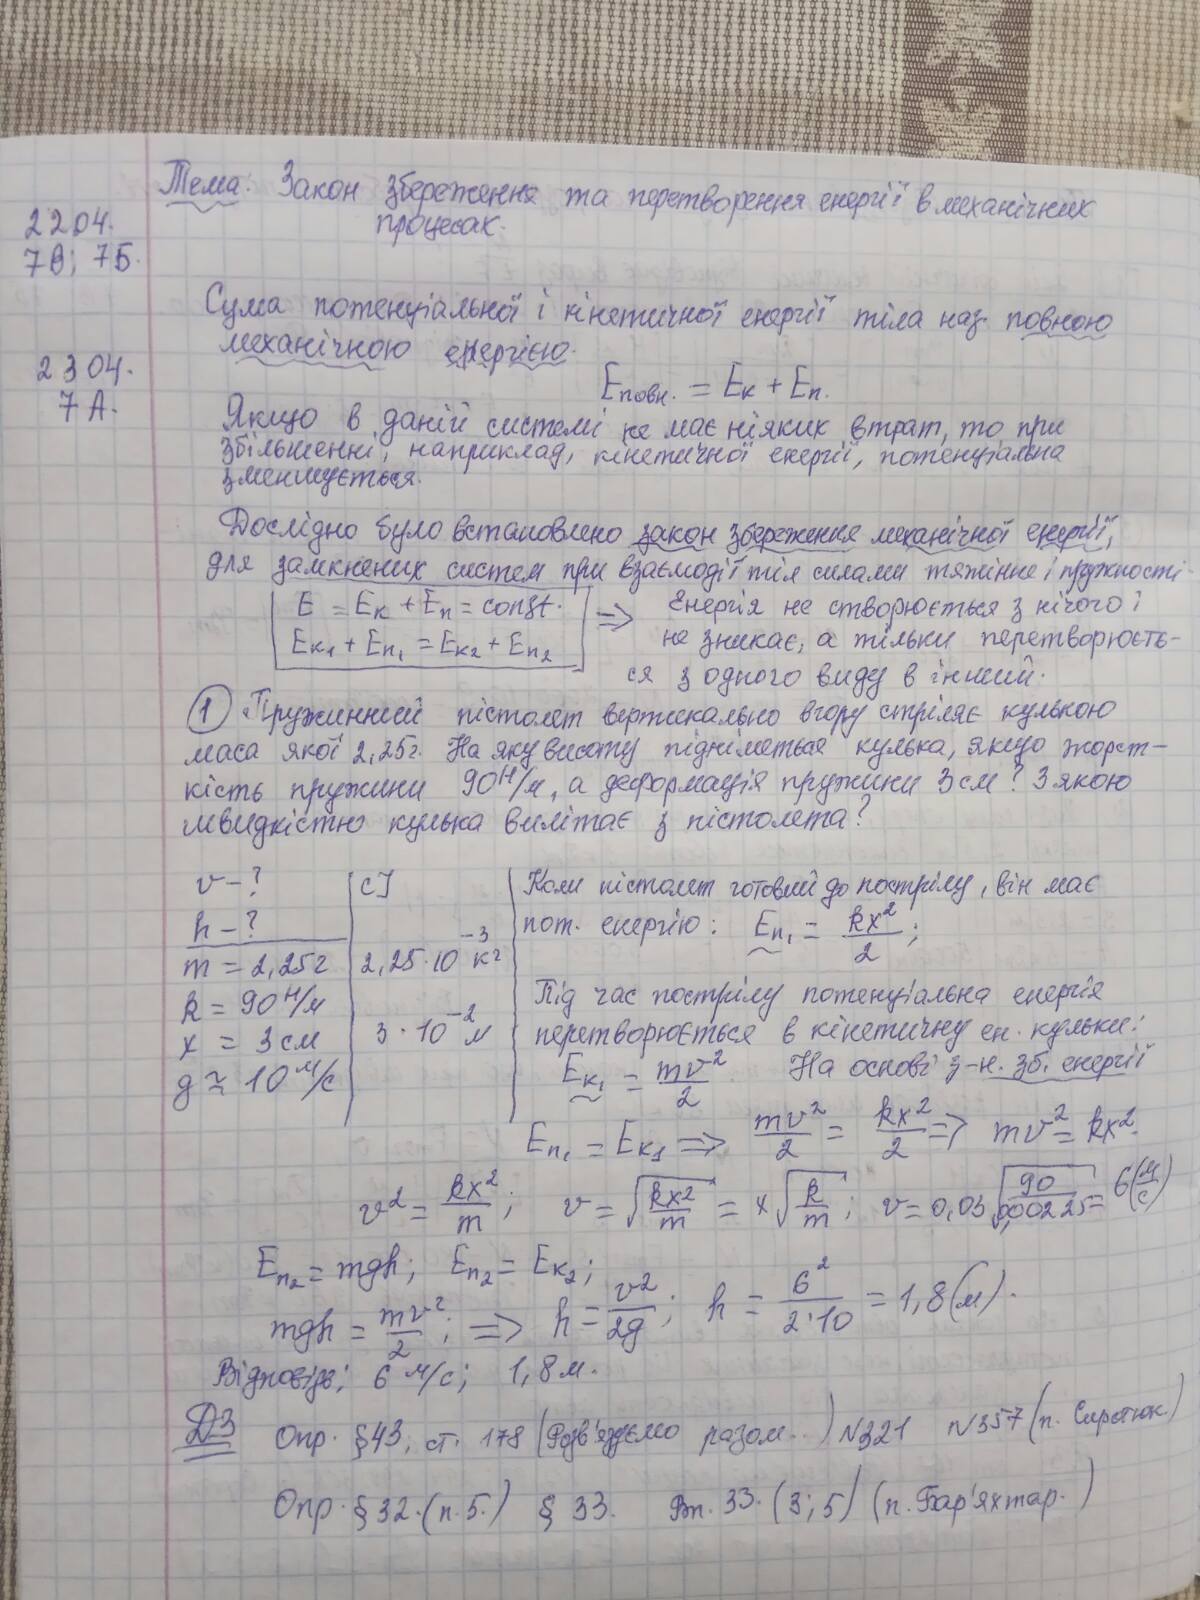 Тема: Закон збереження та перетворення енергії в механічних
процесах.
22.04.
7В; 7Б.
Сума потенціальної і кінетичної енергії тіла наз. повною
механічною енергією.
23.04.
7А.
Eповн. = Eк + Eп.
Якщо в даній системі не має ніяких втрат, то при
збільшенні, наприклад, кінетичної енергії, потенціальна
зменшується.
Дослідно було встановлено закон збереження механічної енергії,
для замкнених систем при взаємодії тіл силами тяжіння і пружності.
E = Eк + Eп = const. => Енергія не створюється з нічого і
Eк₁ + Eп₁ = Eк₂ + Eп₂ не зникає, а тільки перетворюєть-
ся з одного виду в інший.
1 Пружинний пістолет вертикально вгору стріляє кулькою
маса якої 2,25г. На яку висоту підніметься кулька, якщо жорст-
кість пружини 90 Н/м, а деформація пружини 3 см? З якою
швидкістю кулька вилітає з пістолета?
v - ?
h - ?
m = 2,25г
k = 90 Н/м
x = 3 см
g ≈ 10 м/с
СІ
2,25·10⁻³ кг
3·10⁻² м
Коли пістолет готовий до пострілу, він має
пот. енергію: Eп₁ = kx²/2;
Під час пострілу потенціальна енергія
перетворюється в кінетичну ен. кульки:
Eк₁ = mv²/2 На основі з-н. зб. енергії
Eп₁ = Eк₁ => mv²/2 = kx²/2 => mv² = kx².
v² = kx²/m; v = √(kx²/m) = x√(k/m); v = 0,03√(90/0,00225) = 6 (м/с)
Eп₂ = mgh; Eп₂ = Eк₂;
mgh = mv²/2; => h = v²/2g; h = 6²/2·10 = 1,8 (м).
Відповідь: 6 м/с; 1,8 м.
ДЗ Опр. §43, ст. 178 (Розв'язуємо разом..) №321 №357 (п. Сиротюк)
Опр. §32. (п.5.) § 33. Вп. 33. (3; 5) (п. Бар'яхтар.)